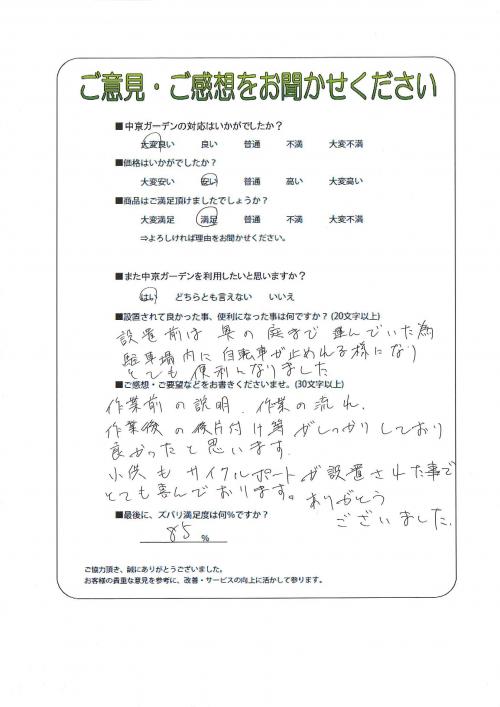 ご意見・ご感想をお聞かせください
■中京ガーデンの対応はいかがでしたか？
大変良い　良い　普通　不満　大変不満
■価格はいかがでしたか？
大変安い　安い　普通　高い　大変高い
■商品はご満足頂けましたでしょうか？
大変満足　満足　普通　不満　大変不満
⇒よろしければ理由をお聞かせください。
■また中京ガーデンを利用したいと思いますか？
はい　どちらとも言えない　いいえ
■設置されて良かった事、便利になった事は何ですか？(20文字以上)
設置前は奥の庭まで運んでいた為
駐車場内に自転車が止めれる様になり
とても便利になりました
■ご感想・ご要望などをお書きくださいませ。(30文字以上)
作業前の説明、作業の流れ、
作業後の後片付け等がしっかりしており
良かったと思います。
小供もサイクルポートが設置された事で
とても喜んでおります。ありがとう
ございました。
■最後に、ズバリ満足度は何％ですか？
85 %
ご協力頂き、誠にありがとうございました。
お客様の貴重な意見を参考に、改善・サービスの向上に活かして参ります。